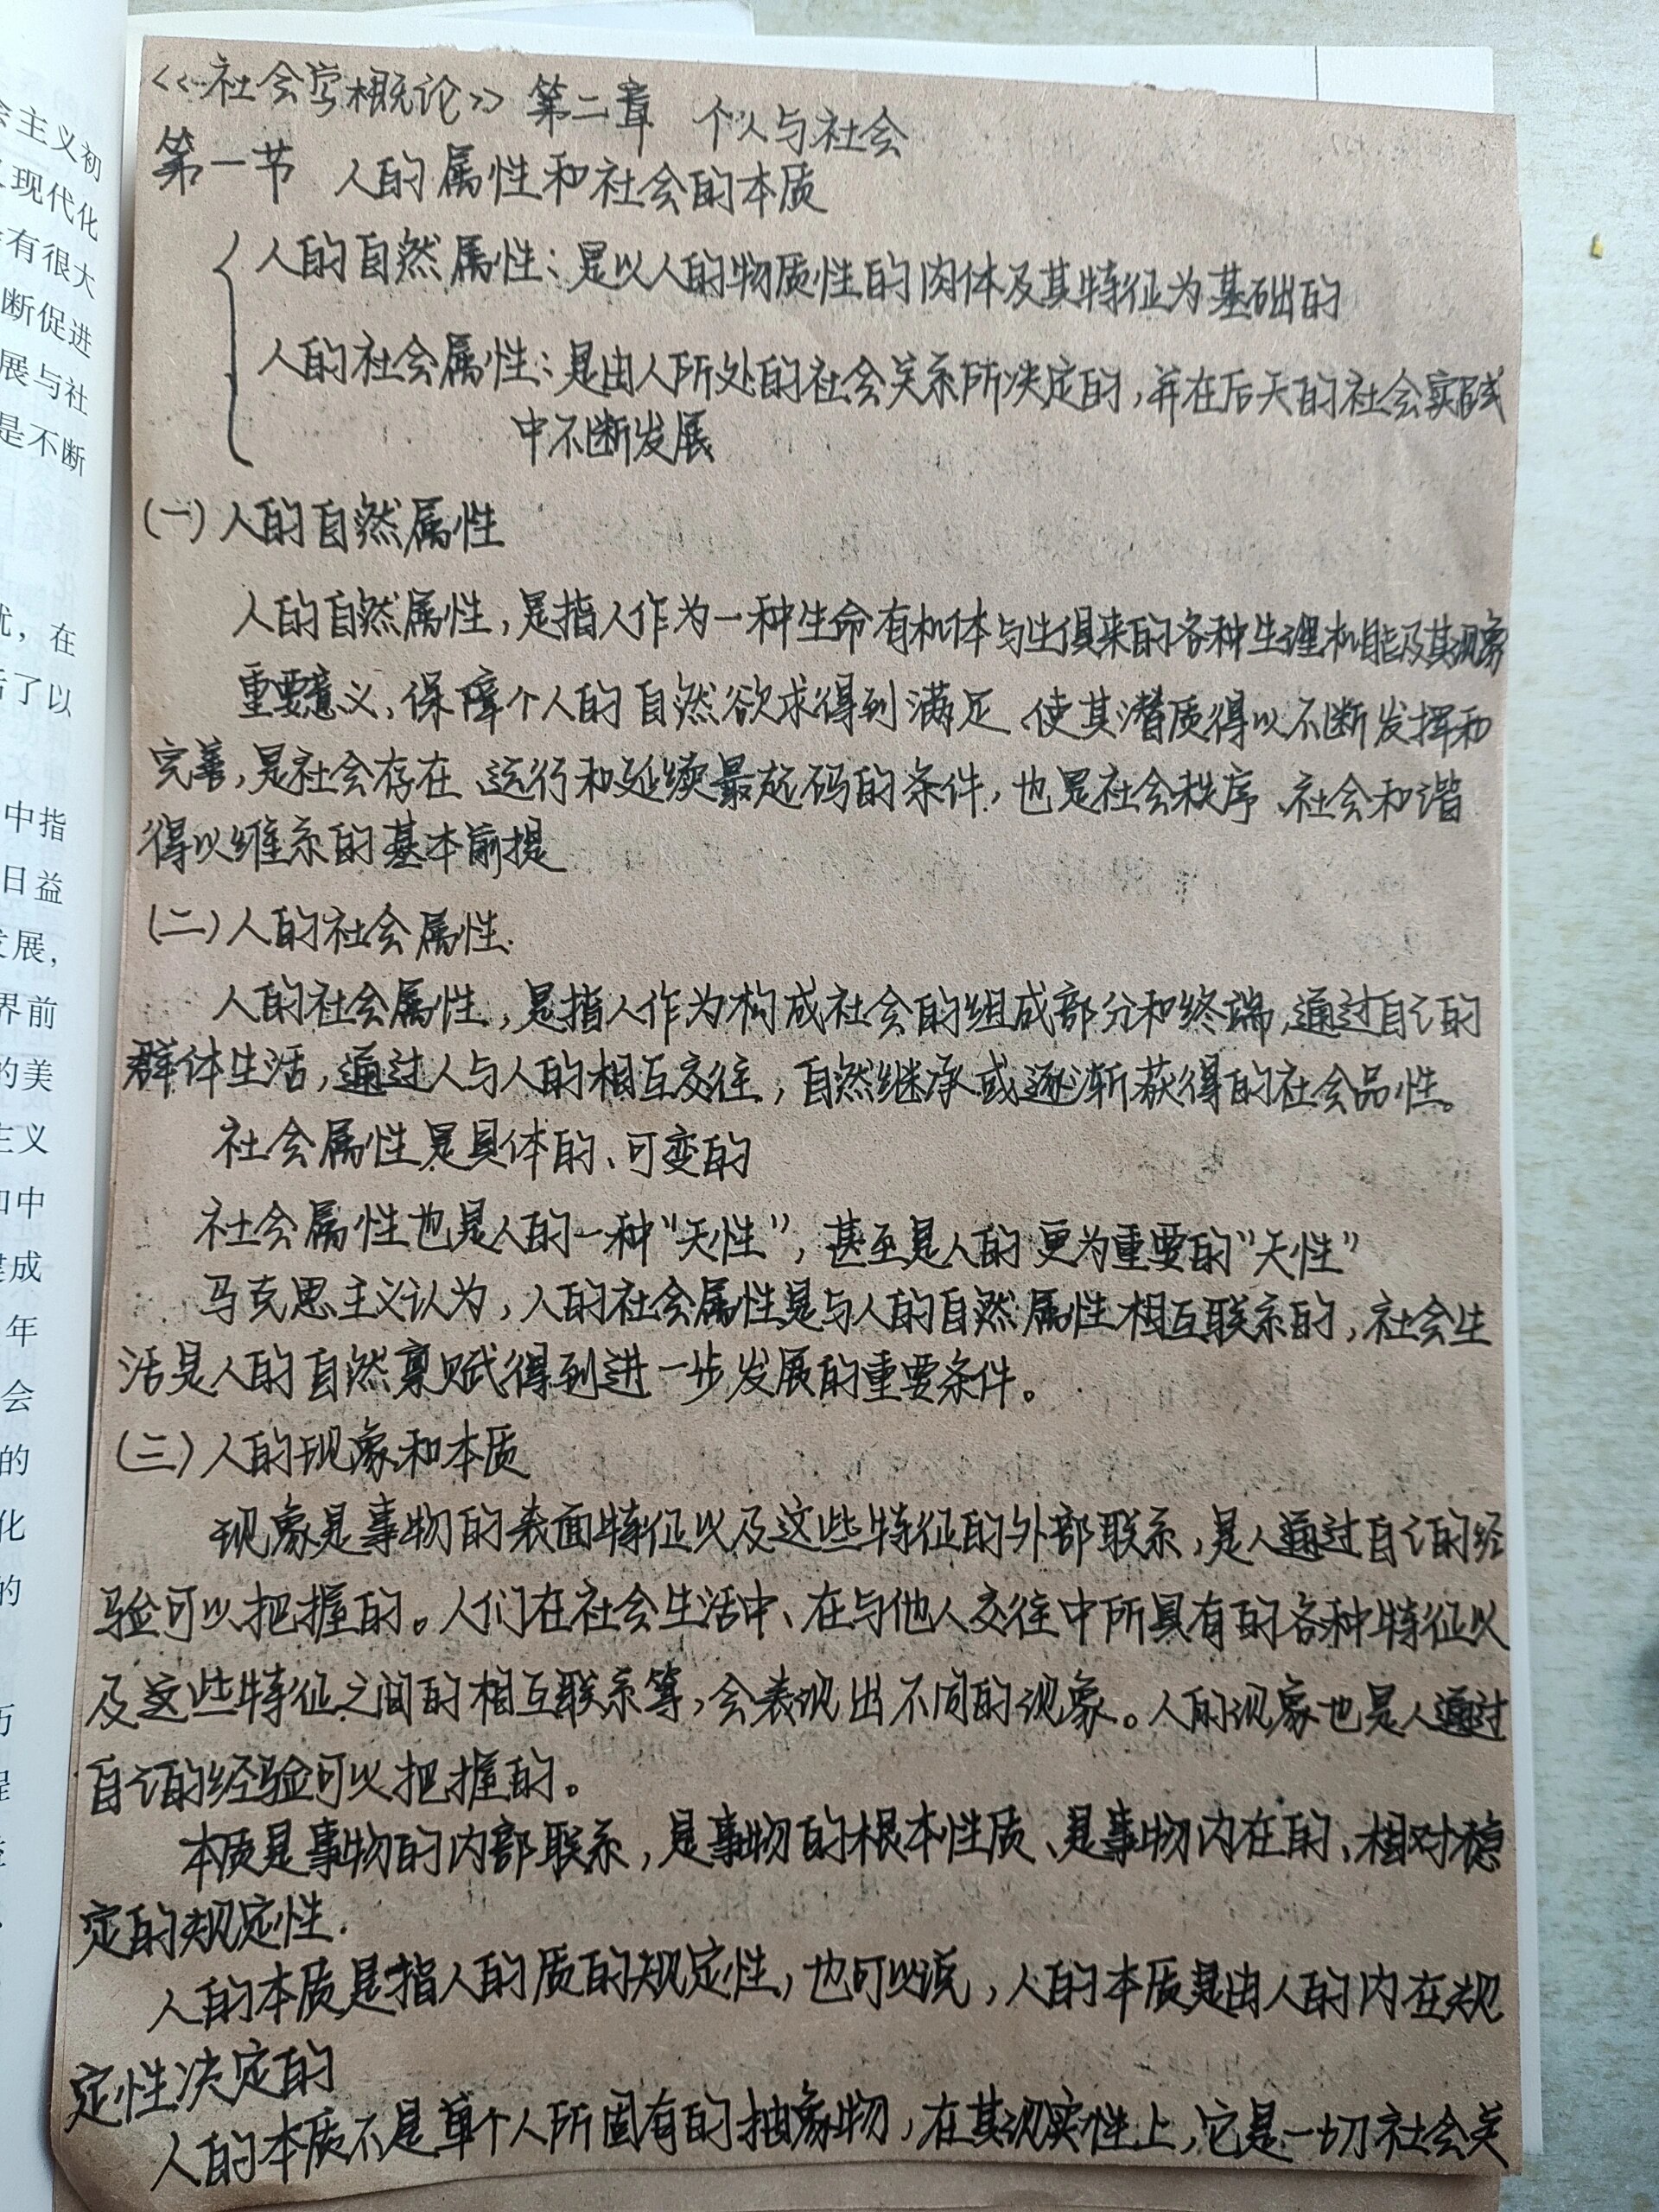 会主义初
现代化
有很大
断促进
展与社
是不断
忧，在
括了以
中指
日益
发展，
界前
的美
主义
和中
建成
年
会
的
化
的
<<社会学概论>> 第二章 个人与社会
第一节 人的属性和社会的本质
人的自然属性：是以人的物质性的肉体及其特征为基础的
人的社会属性：是由人所处的社会关系所决定的，并在后天的社会实践
中不断发展
(一) 人的自然属性
人的自然属性，是指人作为一种生命有机体与生俱来的各种生理机能及其现象
重要意义、保障个人的自然欲求得到满足、使其潜质得以不断发挥和
完善，是社会存在、运行和延续最起码的条件，也是社会秩序、社会和谐
得以维系的基本前提
(二) 人的社会属性.
人的社会属性，是指人作为构成社会的组成部分和终端，通过自己的
群体生活，通过人与人的相互交往，自然继承或逐渐获得的社会品性。
社会属性是具体的、可变的
社会属性也是人的一种“天性”，甚至是人的更为重要的“天性”
马克思主义认为，人的社会属性是与人的自然属性相互联系的，社会生
活是人的自然禀赋得到进一步发展的重要条件。
(三) 人的现象和本质
现象是事物的表面特征以及这些特征的外部联系，是人通过自己的经
验可以把握的。人们在社会生活中、在与他人交往中所具有的各种特征以
及这些特征之间的相互联系等，会表现出不同的现象。人的现象也是人通过
自己的经验可以把握的。
本质是事物的内部联系，是事物的根本性质、是事物内在的、相对稳
定的规定性.
人的本质是指人的质的规定性，也可以说，人的本质是由人的内在规
定性决定的
人的本质不是单个人所固有的抽象物，在其现实性上，它是一切社会关